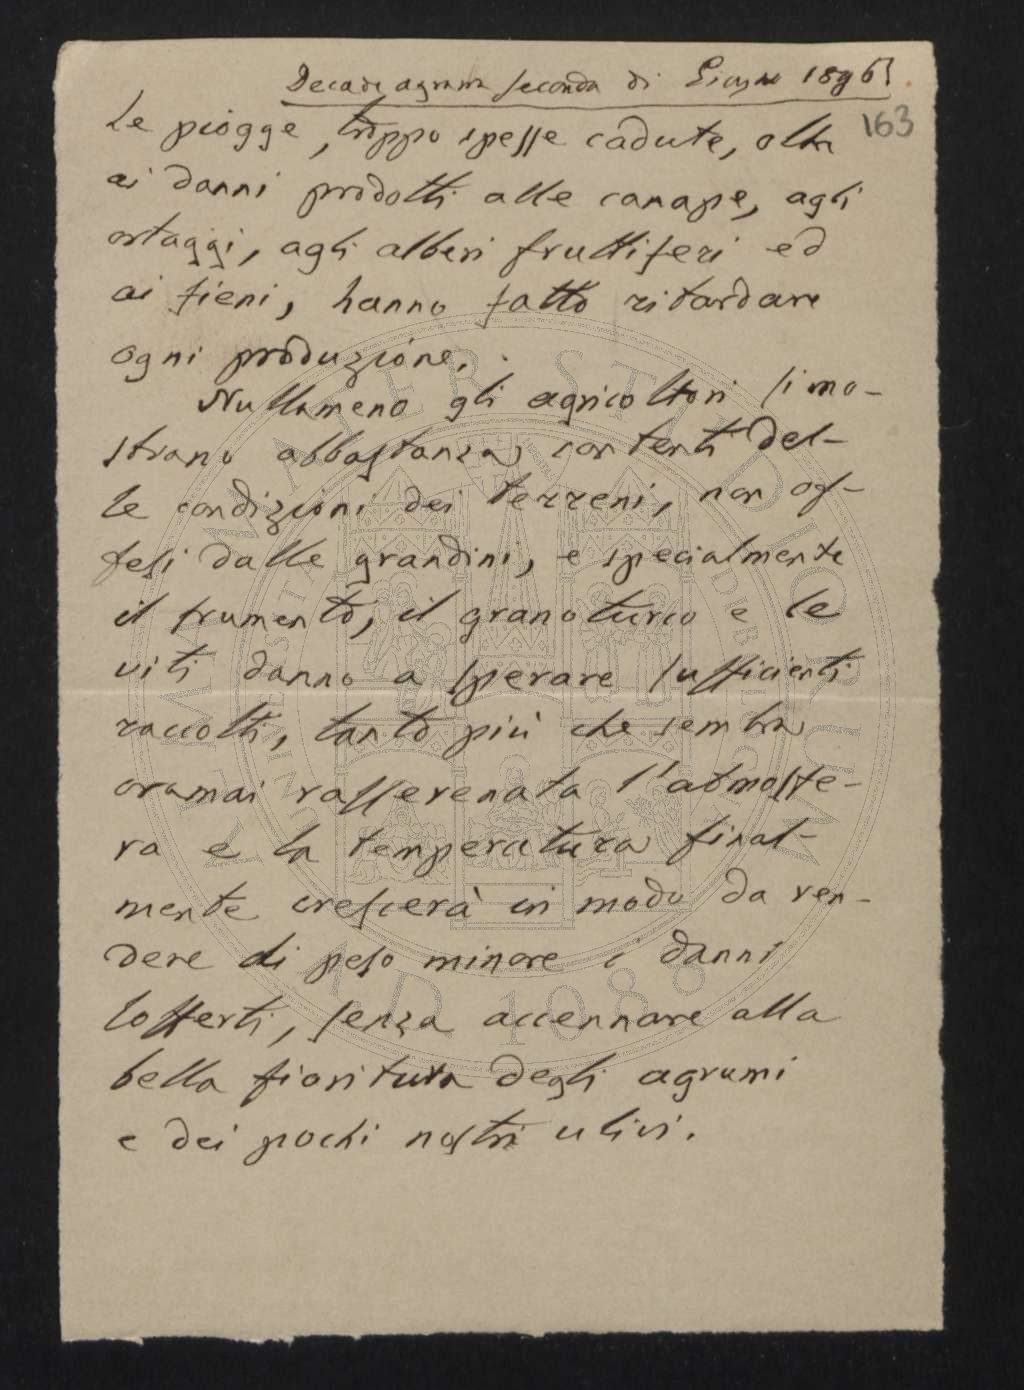 Decade agraria seconda di Giugno 1896
163
Le piogge, troppo spesse cadute, oltre
ai danni prodotti alle canape, agli
ortaggi, agli alberi fruttiferi ed
ai fieni, hanno fatto ritardare
ogni produzione.
Nullameno gli agricoltori si mo-
strano abbastanza contenti del-
le condizioni dei terreni, non of-
fesi dalle grandini, e specialmente
il frumento, il granoturco e le
viti danno a sperare sufficienti
raccolti, tanto più che sembra
oramai rasserenata l'atmosfe-
ra e la temperatura final-
mente crescerà in modo da ren-
dere di peso minore i danni
sofferti, senza accennare alla
bella fioritura degli agrumi
e dei pochi nostri ulivi.
ALMA MATER STUDIORUM
A.D. 1088